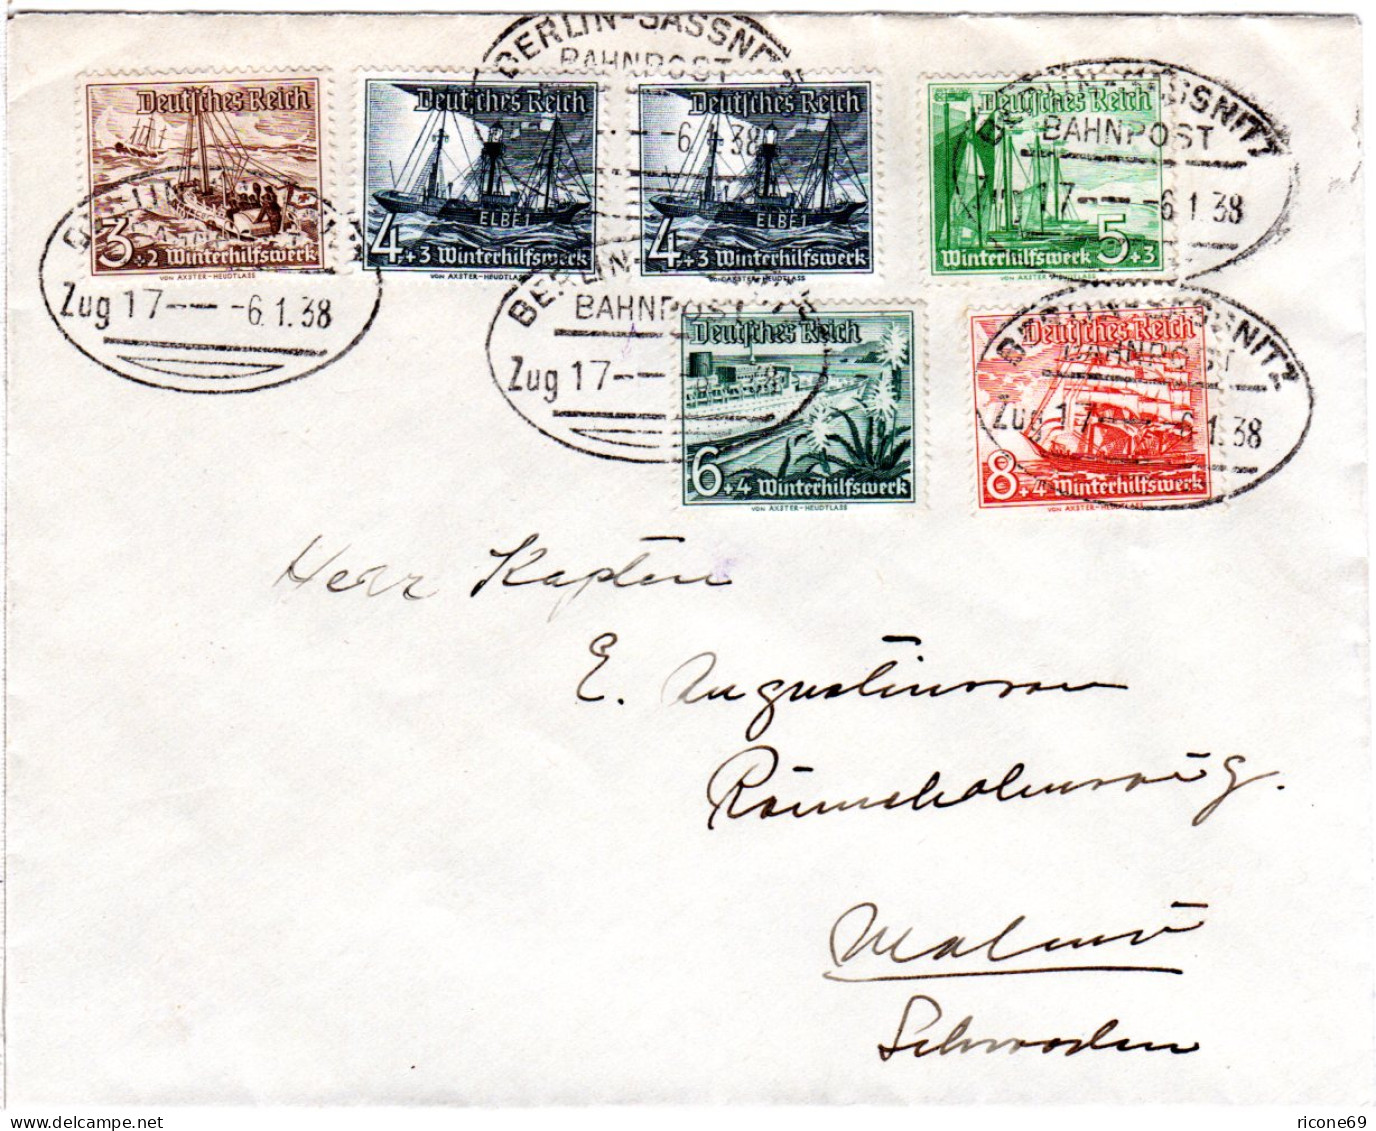 BERLIN-SASSNITZ
BAHNPOST
-6.1.38
Deutsches Reich
3+2 Winterhilfswerk
VON AXSTER-HEUDTLASS
Deutsches Reich
ELBE 1
4+3 Winterhilfswerk
VON AXSTER-HEUDTLASS
Deutsches Reich
ELBE 1
4+3 Winterhilfswerk
VON AXSTER-HEUDTLASS
BERLIN-SASSNITZ
BAHNPOST
Zug 17 -- -6.1.38
Winterhilfswerk 5+3
VON AXSTER-HEUDTLASS
Zug 17 -- -6.1.38
BERLIN-
BAHNPOST
Zug 17 -- -6.1.38
Deutsches Reich
6+4 Winterhilfswerk
VON AXSTER-HEUDTLASS
BERLIN-SASSNITZ
BAHNPOST
Zug 17 -- -6.1.38
Deutsches Reich
8+4 Winterhilfswerk
VON AXSTER-HEUDTLASS
Herr Kapten
E. Augustinsson
Malmö
Schweden
ricone69